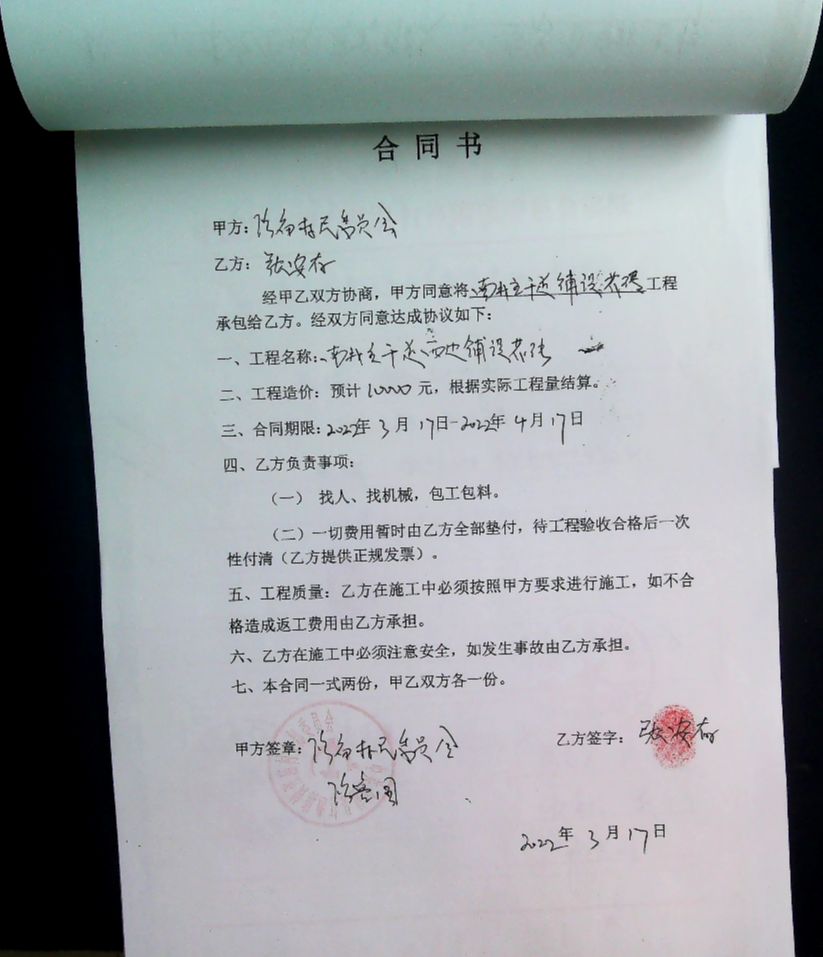 合同书
甲方：村民委员会
乙方：张安存
经甲乙双方协商，甲方同意将南北主干道铺设花砖工程
承包给乙方。经双方同意达成协议如下：
一、工程名称：南北主干道西边铺设花砖
二、工程造价：预计1000元，根据实际工程量结算。
三、合同期限：2022年3月17日-2022年4月17日
四、乙方负责事项：
（一） 找人、找机械，包工包料。
（二）一切费用暂时由乙方全部垫付，待工程验收合格后一次
性付清（乙方提供正规发票）。
五、工程质量：乙方在施工中必须按照甲方要求进行施工，如不合
格造成返工费用由乙方承担。
六、乙方在施工中必须注意安全，如发生事故由乙方承担。
七、本合同一式两份，甲乙双方各一份。
甲方签章：村民委员会 乙方签字：张安存
2022年3月17日